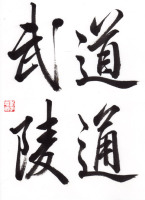 道通
武陵